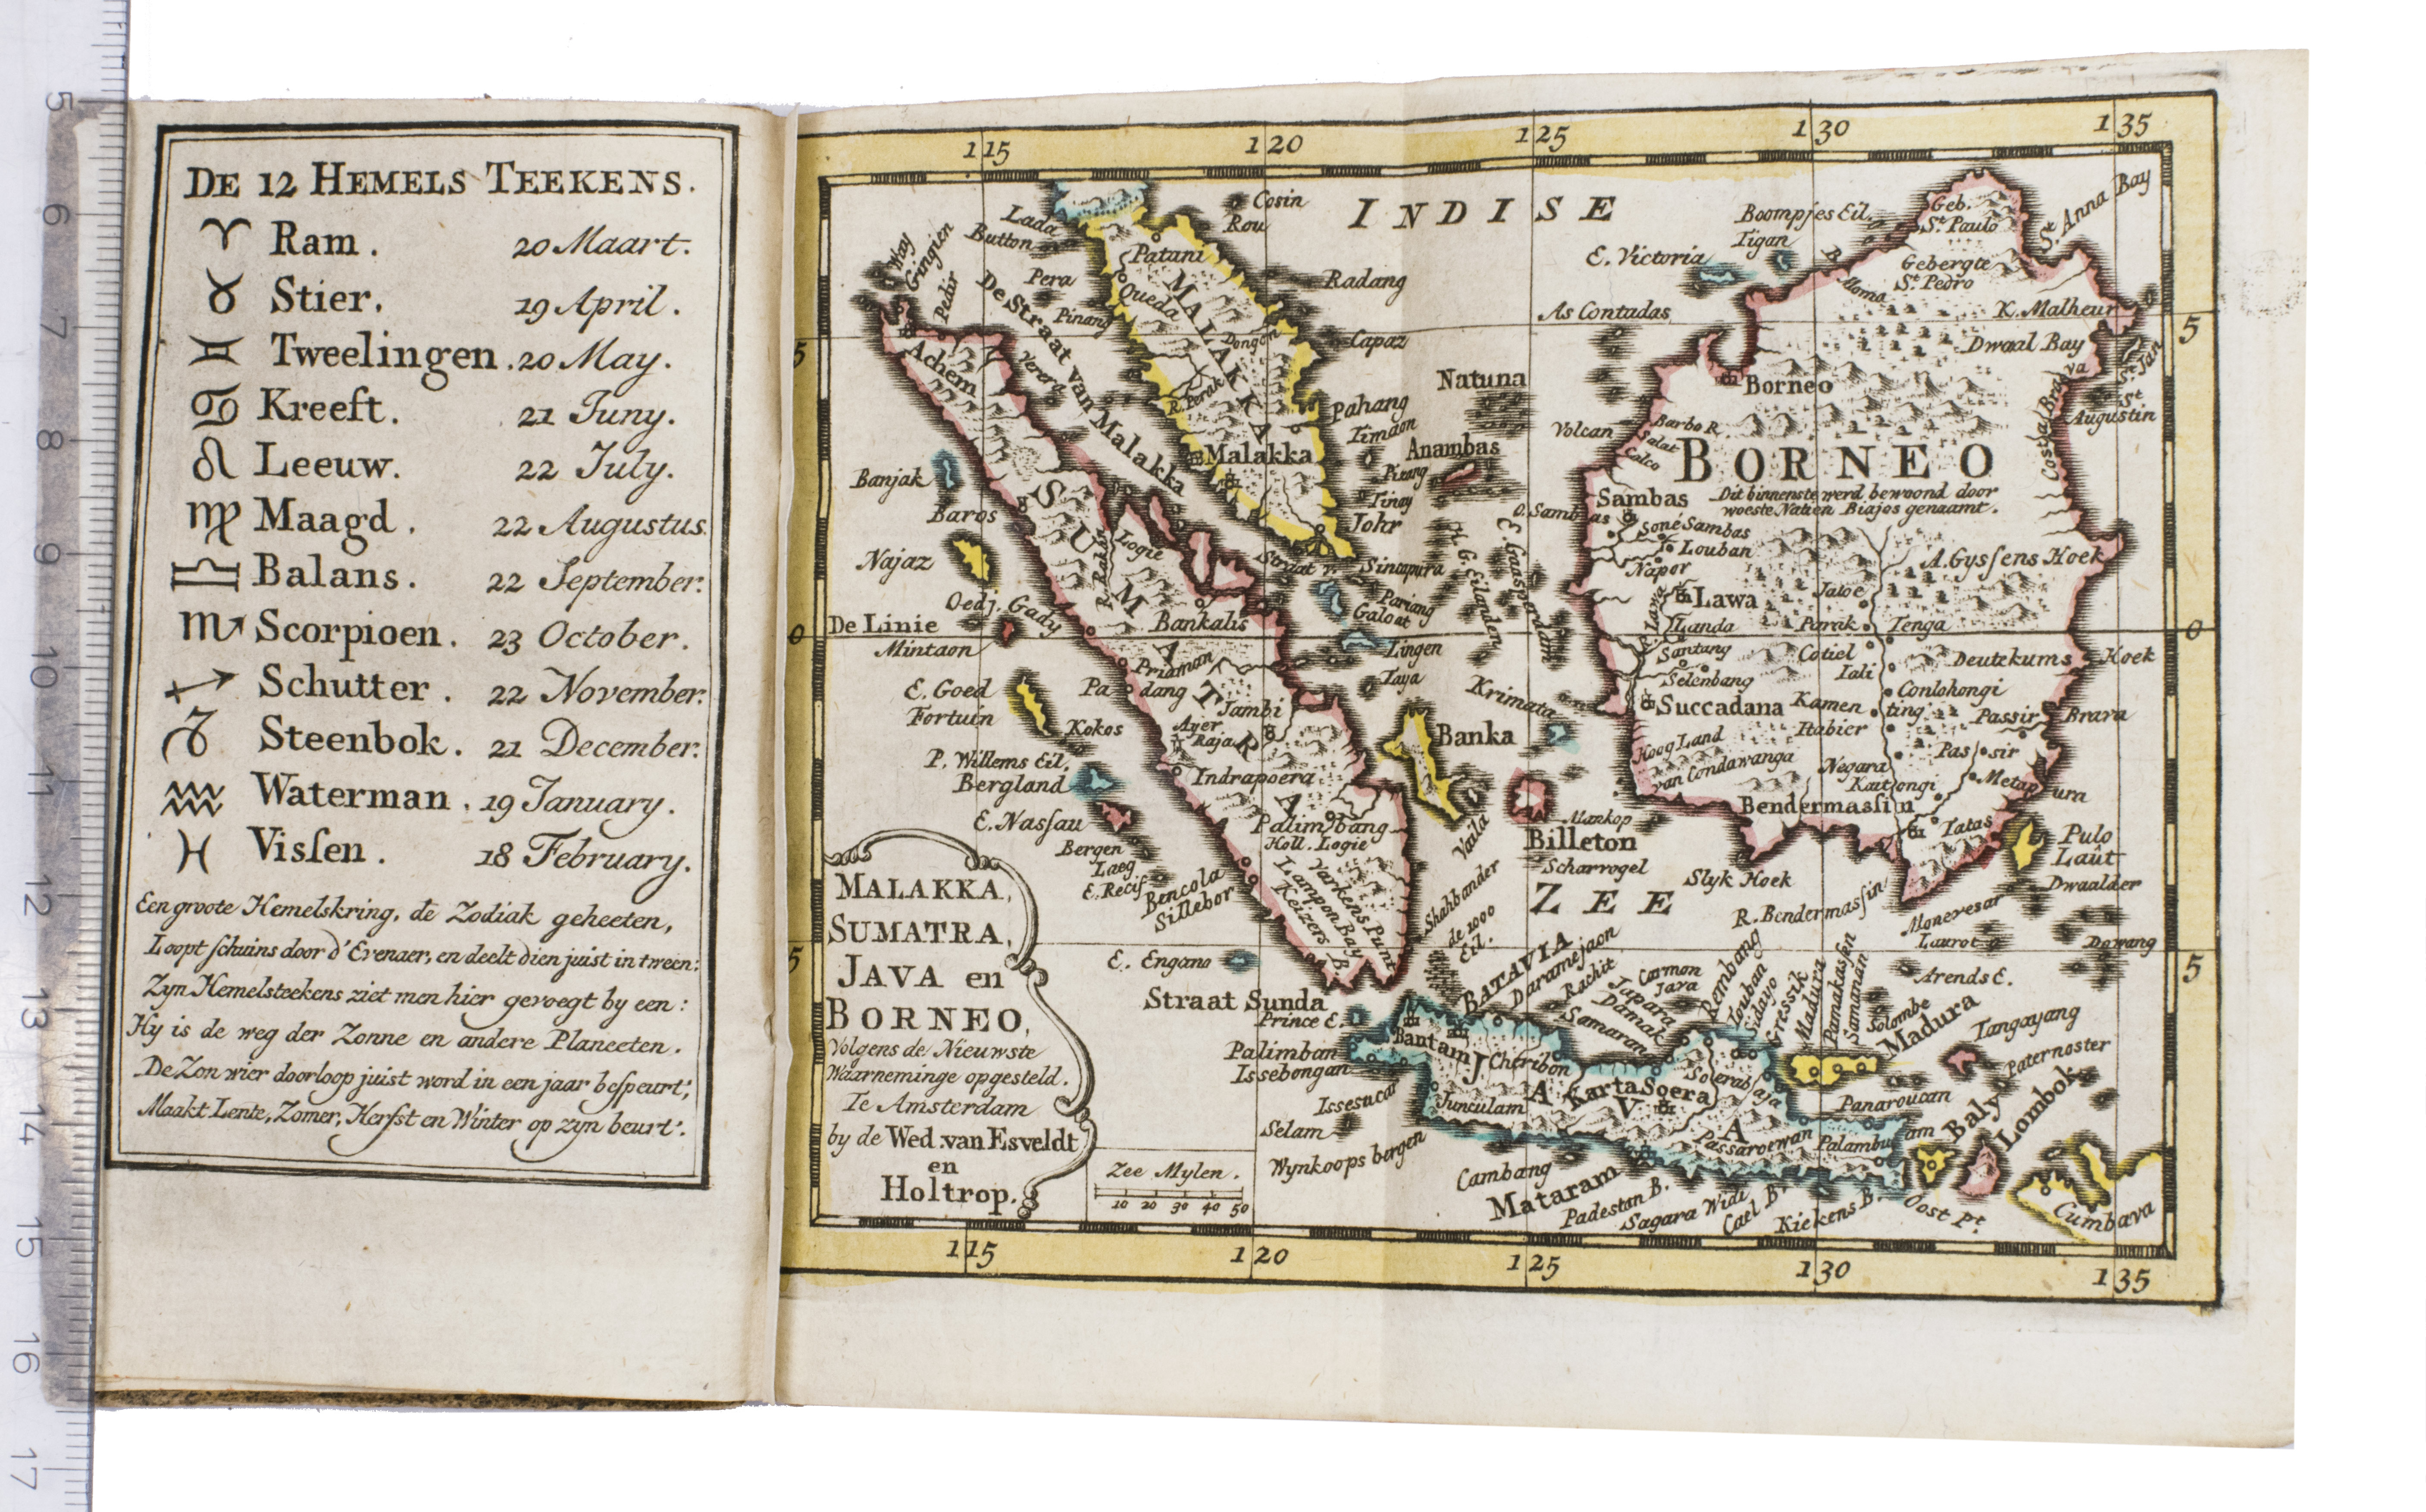 DE 12 HEMELS TEEKENS.
♈ Ram. 20 Maart.
♉ Stier. 19 April.
♊ Tweelingen. 20 May.
♋ Kreeft. 21 Juny.
♌ Leeuw. 22 July.
♍ Maagd. 22 Augustus.
♎ Balans. 22 September.
♏ Scorpioen. 23 October.
♐ Schutter. 22 November.
♑ Steenbok. 21 December.
♒ Waterman. 19 January.
♓ Visſen. 18 February.
Een groote Hemelskring, de Zodiak geheeten,
Loopt ſchuins door d'Evenaer, en deelt dien juist in tween:
Zyn Hemelsteekens ziet men hier gevoegt by een:
Hy is de weg der Zonne en andere Planeeten.
De Zon wier doorloop juist word in een jaar beſpeurt;
Maakt Lente, Zomer, Herfst en Winter op zyn beurt.
5
6
7
8
9
10
11
12
13
14
15
16
17
115 120 125 130 135
INDISE
ZEE
Cosin
Rou
Lada
Button
Way
Gingien
Pedir
Pera
Pinang
De Straat van Malakka
Verera
Patani
Queda
MALAKKA
Dongon
R. Perak
Malakka
Radang
Capaz
Pahang
Timaon
Pisang
Tinay
Johr
Natuna
Anambas
Straat v. Sincapura
Pariang
Galoat
Lingen
Taya
H. G. Eilanden
E. Gaasperdam
Krimata
Achem
SUMATRA
Banjak
Baros
Najaz
Oedj. Gady
De Linie
Mintaon
Logie
R. Rakan
Bankalis
Priaman
Padang
E. Goed
Fortuin
Kokos
Ayer
Raja
Jambi
P. Willems Eil.
Bergland
Indrapoera
E. Nasſau
Bergen
Laeg
E. Recif
Bencola
Sillebor
Palimbang
Holl. Logie
Lampon Bay
Keizers B.
Varkens Punt
E. Engano
Straat Sunda
Banka
Vaila
Billeton
Mankop
Scharvogel
Shahbander
de 1000
Eil.
Boompjes Eil.
Tigan
E. Victoria
As Contadas
Geb.
St. Paulo
St. Anna Bay
Gebergte
St. Pedro
K. Malheur
Dwaal Bay
St. Jan
St.
Augustin
Borneo
Volcan
Barbo R.
Salat
Calco
BORNEO
Dit binnenste werd bewoond door
woeste Natien Biajos genaamt.
Sambas
O. Sambas
Soné Sambas
Louban
Napor
A. Gysſens Hoek
Lawa
R. Lawa
Landa
Jaloe
Parak
Tenga
Santang
Selenbang
Cotiel
Iali
Deutekums Hoek
Conlohongi
Succadana
Kamen
ting
Itabier
Passir
Brava
Hoog Land
van Condawanga
Negara
Kautongi
Pas sir
Metapura
Bendermasſin
Tatas
Pulo
Laut
Dwaalder
Slyk Hoek
R. Bendermasſin
Moneresar
Laurot
Dowang
Arends E.
BATAVIA
Daramejaon
Rachit
Carmon
Java
Japara
Damak
Samarang
Rembang
Touban
Sidayo
Gressik
Madura
Pamakasſan
Samanan
Solombe
Madura
Tangayang
Paternoster
Prince E.
Palimban
Issebongan
Issesucar
Selam
Wynkoops bergen
Bantam
Cheribon
JAVA
Junculam
Karta Soera
Soerabaja
Passaroewan
Panaroucan
Palambuam
Baly
Lombok
Cumbava
Cambang
Mataram
Padestan B.
Sagara Widi
Cael B.
Kiekens B.
Oost Pt.
MALAKKA,
SUMATRA,
JAVA en
BORNEO,
Volgens de Nieuwste
Waarneminge opgesteld.
Te Amsterdam
by de Wed. van Esveldt
en
Holtrop.
Zee Mylen.
10 20 30 40 50
5 5
0 0
5 5
115 120 125 130 135